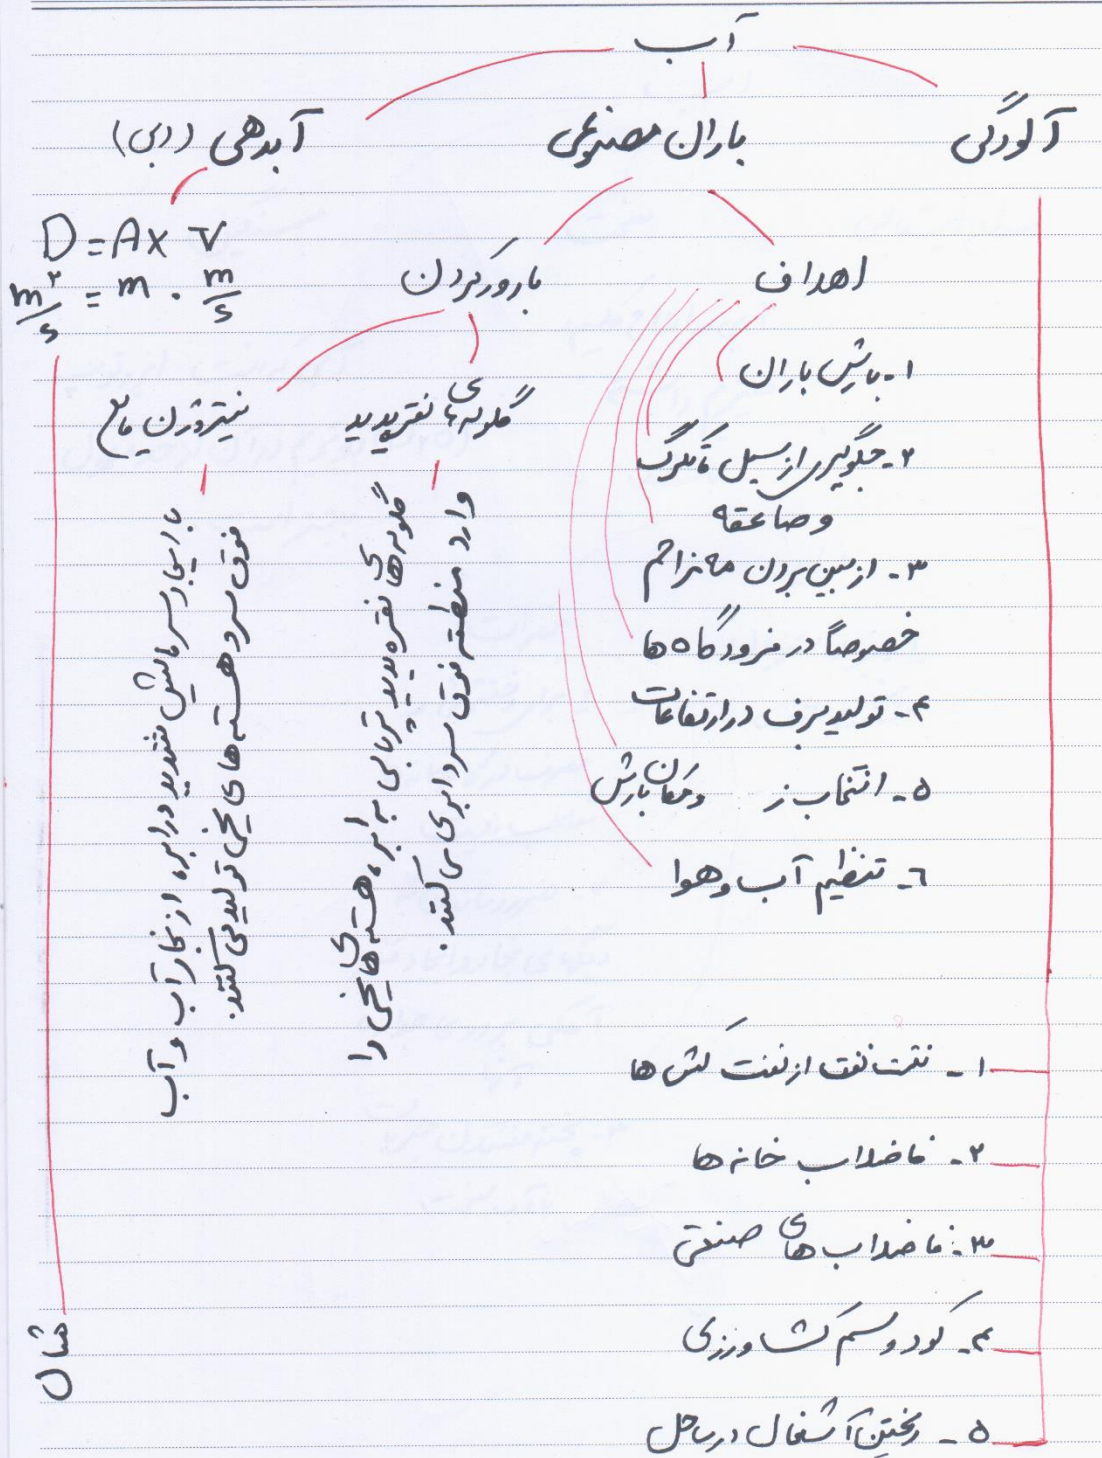 آب
آلودگی
باران مصنوعی
آبدهی (دبی)
D = A × V
m³/s = m · m/s
اهداف
بارور کردن
۱- بارش باران
۲- جلوگیری از سیل تگرگ
و صاعقه
۳- از بین بردن مه تراکم
خصوصاً در فرودگاه ها
۴- تولید برف در ارتفاعات
۵- انتخاب ز و مکان بارش
۶- تنظیم آب و هوا
گلوله‌های نقره یدید
نیتروژن مایع
گلوله های نقره یدید پرتابی به ابر، هسته های یخی را
وارد منطقه فوق سرد ابری می کنند.
با ایجاد سرمایش شدید در ابر، از بخار آب و آب
فوق سرد هسته های یخی تولید می کنند.
۱- نشت نفت از نفت کش ها
۲- فاضلاب خانه ها
۳- فاضلاب های صنعتی
۴- کود و سم کشاورزی
۵- ریختن آشغال در ساحل
مثال